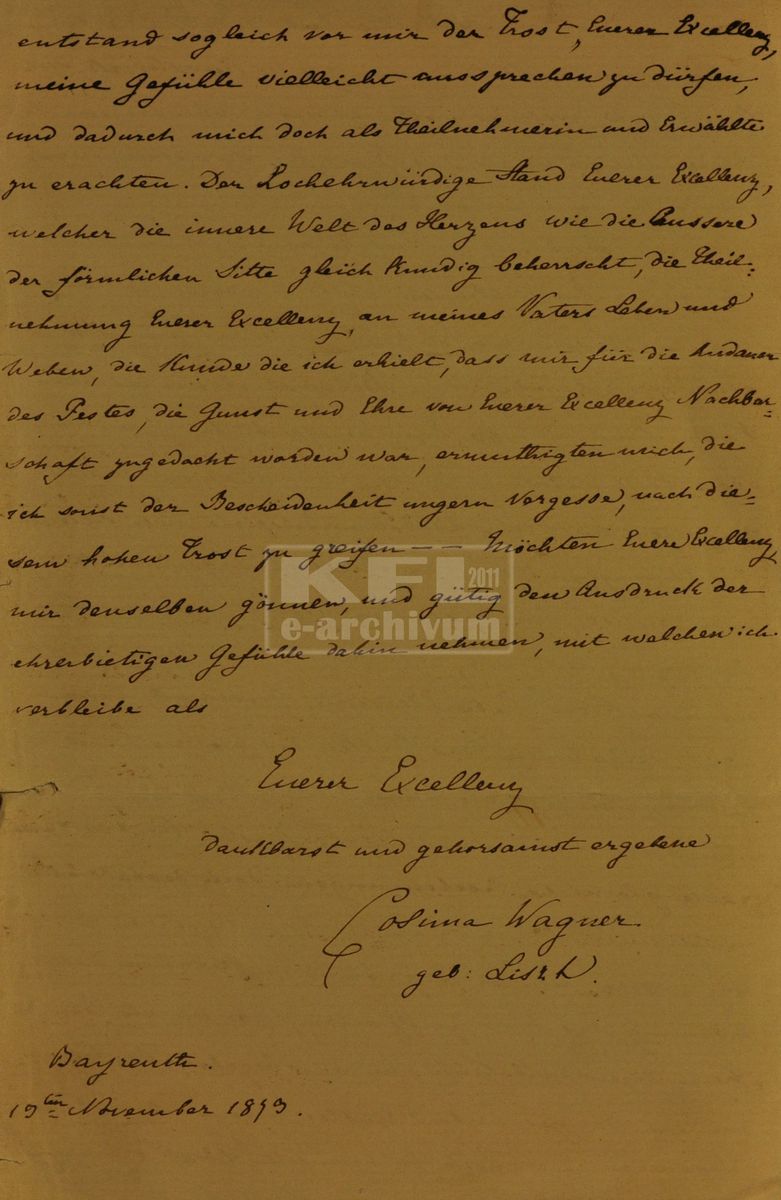 entstand sogleich vor mir der Trost, Euerer Excellenz,
meine Gefühle vielleicht aussprechen zu dürfen,
und dadurch mich doch als Theilnehmerin und Erwählte
zu erachten. Der Hochehrwürdige Stand Euerer Excellenz,
welcher die innere Welt des Herzens wie die Äussere
der förmlichen Sitte gleich kundig beherrscht, die Theil=
nehmung Euerer Excellenz, an meines Vaters Leben und
Weben, die Kunde die ich erhielt, dass mir für die Andauer
des Festes, die Gunst und Ehre von Euerer Excellenz Nachbar=
schaft zugedacht worden war, ermuthigten mich, die
ich sonst der Bescheidenheit ungern vergesse, nach die=
sem hohen Trost zu greifen — — Möchten Euere Excellenz
KFI 2011
mir denselben gönnen, und gütig den Ausdruck der
e-archivum
ehrerbietigen Gefühle dahin nehmen, mit welchen ich
verbleibe als
Euerer Excellenz
dankbarst und gehorsamst ergebene
Cosima Wagner
geb: Liszt.
Bayreuth.
19ten November 1873.